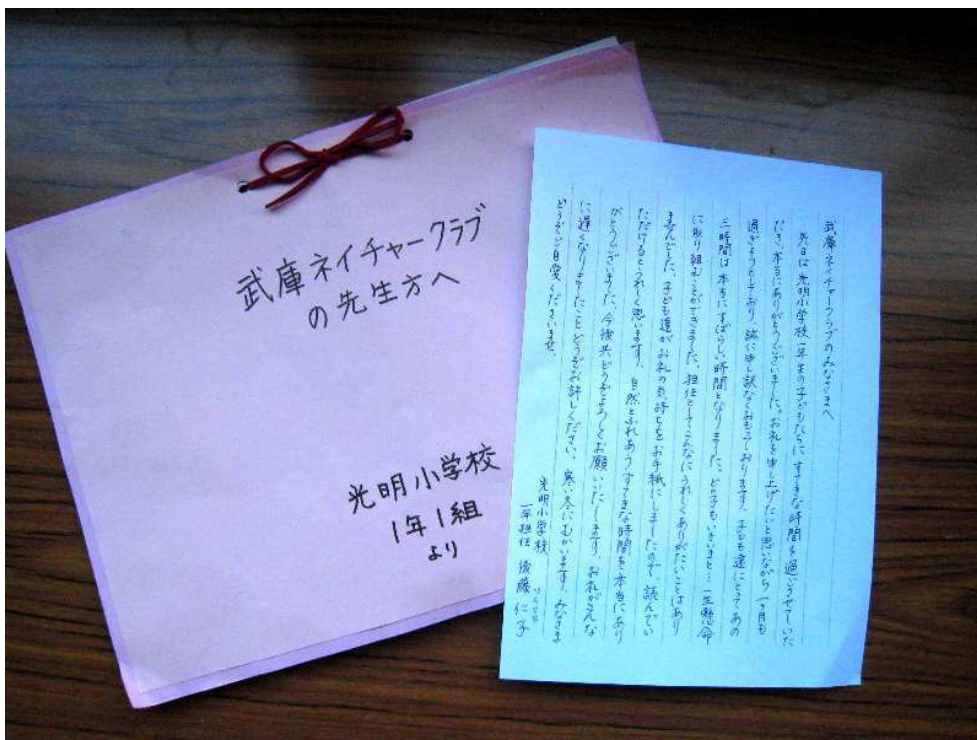 武庫ネイチャークラブ
の先生方へ
光明小学校
1年1組
より
武庫ネイチャークラブのみなさまへ
先日は光明小学校一年生の子どもたちに、すてきな時間を過ごさせていた
だき、本当にありがとうございました。お礼を申し上げたいと思いながら一ヶ月も
過ぎようとしており、誠に申し訳なくおもっております。子ども達にとってあの
三時間は本当にすばらしい時間となりました。どの子もいきいきと…一生懸命
に取り組むことができました。担任としてこんなにうれしくありがたいことはあり
ませんでした。子ども達がお礼の気持ちをお手紙にしましたので、読んでい
ただけるとうれしく思います。自然とふれあうすてきな時間を本当にあり
がとうございました。今後共どうぞよろしくお願いいたします。お礼がこんな
に遅くなりましたことどうぞお許しください。寒い冬にむかいます。みなさま
どうぞご自愛くださいませ。
光明小学校
一年担任 後藤仁子